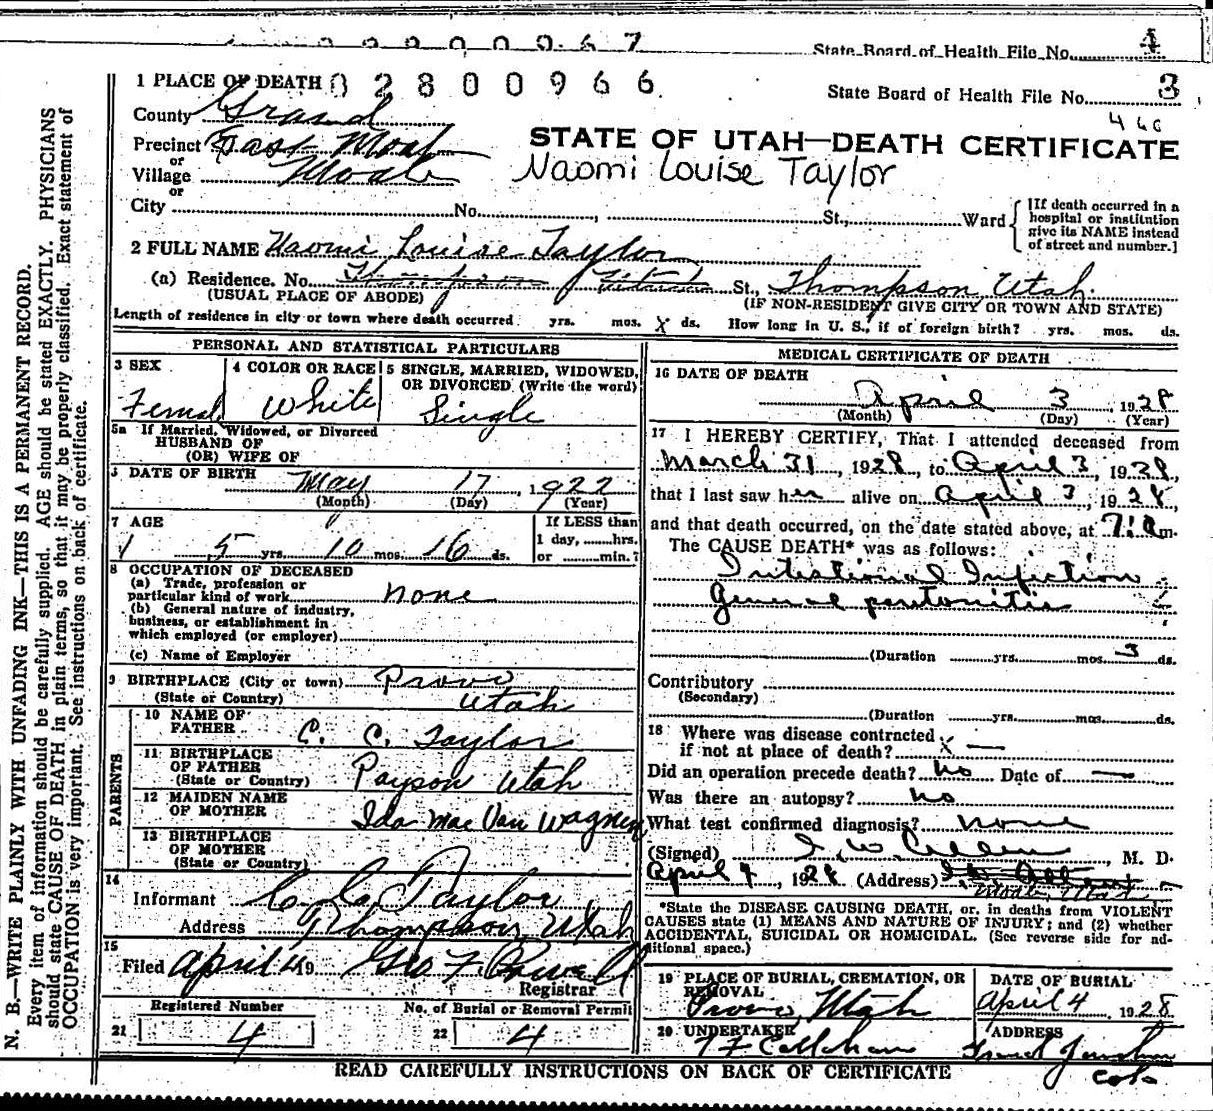 State Board of Health File No. 4
1 PLACE OF DEATH 02800966
State Board of Health File No. 3
County Grand
466
Precinct East Moab
STATE OF UTAH—DEATH CERTIFICATE
or
Village Moab
Naomi Louise Taylor
or
City No. , St., Ward
[If death occurred in a hospital or institution give its NAME instead of street and number.]
2 FULL NAME Naomi Louise Taylor
(a) Residence. No. Thompson St., Thompson Utah.
(USUAL PLACE OF ABODE) (IF NON-RESIDENT GIVE CITY OR TOWN AND STATE)
Length of residence in city or town where death occurred yrs. mos. X ds. How long in U. S., if of foreign birth? yrs. mos. ds.
PERSONAL AND STATISTICAL PARTICULARS
3 SEX 4 COLOR OR RACE 5 SINGLE, MARRIED, WIDOWED, OR DIVORCED (Write the word)
Female White Single
5a If Married, Widowed, or Divorced
HUSBAND OF
(OR) WIFE OF
DATE OF BIRTH May 17, 1922
(Month) (Day) (Year)
7 AGE
5 yrs. 10 mos. 16 ds.
If LESS than
1 day, hrs.
or min.?
8 OCCUPATION OF DECEASED
(a) Trade, profession or
particular kind of work none
(b) General nature of industry,
business, or establishment in
which employed (or employer)
(c) Name of Employer
9 BIRTHPLACE (City or town) Provo
(State or Country) Utah
PARENTS
10 NAME OF
FATHER C. C. Taylor
11 BIRTHPLACE
OF FATHER Payson Utah
(State or Country)
12 MAIDEN NAME
OF MOTHER Ida Mae Van Wagnen
13 BIRTHPLACE
OF MOTHER
(State or Country)
14
Informant C. C. Taylor
Address Thompson, Utah
15
Filed April 4 19 Geo F. Powell
Registrar
Registered Number No. of Burial or Removal Permit
21 4 22 4
MEDICAL CERTIFICATE OF DEATH
16 DATE OF DEATH
April 3, 1928
(Month) (Day) (Year)
17 I HEREBY CERTIFY, That I attended deceased from
March 31, 1928, to April 3, 1928,
that I last saw her alive on April 3, 1928,
and that death occurred, on the date stated above, at m.
The CAUSE DEATH* was as follows:
Intestional Infiction
General peritonitis
(Duration yrs. mos. 3 ds.
Contributory
(Secondary)
(Duration yrs. mos. ds.
18 Where was disease contracted
if not at place of death? X —
Did an operation precede death? no Date of —
Was there an autopsy? no
What test confirmed diagnosis? none
(Signed) , M. D.
April 4, 1928 (Address) Moab, Utah
*State the DISEASE CAUSING DEATH, or, in deaths from VIOLENT
CAUSES state (1) MEANS AND NATURE OF INJURY; and (2) whether
ACCIDENTAL, SUICIDAL OR HOMICIDAL. (See reverse side for ad-
ditional space.)
19 PLACE OF BURIAL, CREMATION, OR
REMOVAL
Provo, Utah
DATE OF BURIAL
April 4, 1928
20 UNDERTAKER
ADDRESS
Grand Junction
Colo
READ CAREFULLY INSTRUCTIONS ON BACK OF CERTIFICATE
N. B.—WRITE PLAINLY WITH UNFADING INK—THIS IS A PERMANENT RECORD.
Every item of information should be carefully supplied. AGE should be stated EXACTLY. PHYSICIANS
should state CAUSE OF DEATH in plain terms, so that it may be properly classified. Exact statement of
OCCUPATION is very important. See instructions on back of certificate.